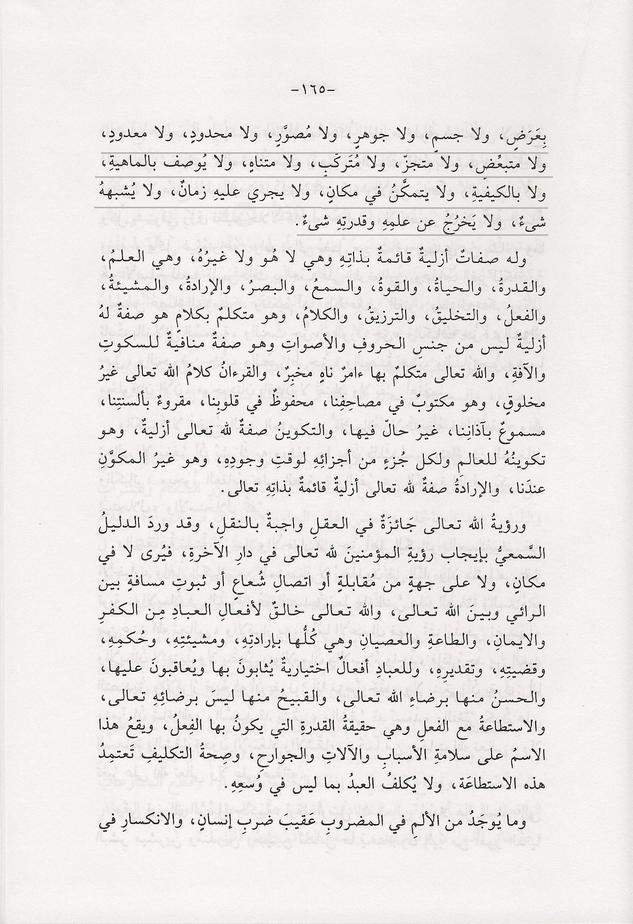 -١٦٥-
بِعَرَضٍ، ولا جسمٍ، ولا جوهرٍ، ولا مُصوَّرٍ، ولا محدودٍ، ولا معدودٍ،
ولا متبعِّضٍ، ولا متجزّ، ولا مُتَركَبٍ، ولا متناهٍ، ولا يُوصف بالماهيةِ،
ولا بالكيفيةِ، ولا يتمكَّنُ في مكانٍ، ولا يجري عليهِ زمانٌ، ولا يُشبههُ
شىءٌ، ولا يَخرُجُ عن علمِهِ وقدرتِهِ شىءٌ.
وله صفاتٌ أزليةٌ قائمةٌ بذاتِهِ وهي لا هُو ولا غيرُهُ، وهي العلمُ،
والقدرةُ، والحياةُ، والقوةُ، والسمعُ، والبصرُ، والإرادةُ، والمشيئةُ،
والفعلُ، والتخليقُ، والترزيقُ، والكلامُ، وهو متكلمٌ بكلامٍ هو صفةٌ لهُ
أزليةٌ ليس من جنسِ الحروفِ والأصواتِ وهو صفةٌ منافيةٌ للسكوتِ
والآفةِ، والله تعالى متكلمٌ بها ءامرٌ ناهٍ مخبِرٌ، والقرءانُ كلامُ الله تعالى غيرُ
مخلوقٍ، وهو مكتوبٌ في مصاحِفِنا، محفوظٌ في قلوبِنا، مقروءٌ بألسنتِنا،
مسموعٌ بآذانِنا، غيرُ حالّ فيها، والتكوينُ صفةٌ لله تعالى أزليةٌ، وهو
تكوينُهُ للعالمِ ولكل جُزءٍ من أجزائِهِ لوقتِ وجودِهِ، وهو غيرُ المكوَّنِ
عندَنا، والإرادةُ صفةٌ لله تعالى أزليةٌ قائمةٌ بذاتِهِ تعالى.
ورؤيةُ الله تعالى جَائزَةٌ في العقلِ واجبةٌ بالنقلِ، وقد وردَ الدليلُ
السَّمعيُّ بإيجابِ رؤيةِ المؤمنينَ لله تعالى في دارِ الآخرةِ، فيُرى لا في
مكانٍ، ولا على جهةٍ من مُقابلةٍ أو اتصالِ شُعاعٍ أو ثبوتِ مسافةٍ بين
الرائي وبينَ الله تعالى، والله تعالى خالقٌ لأفعالِ العبادِ مِن الكفرِ
والايمانِ، والطاعةِ والعصيانِ وهي كُلُّها بإرادتِهِ، ومشيئتِهِ، وحُكمِهِ،
وقضيتِهِ، وتقديرِهِ، وللعبادِ أفعالٌ اختياريةٌ يُثابونَ بها ويُعاقبونَ عليها،
والحسنُ منها برضاءِ الله تعالى، والقبيحُ منها ليسَ برضائِهِ تعالى،
والاستطاعةُ مع الفعلِ وهي حقيقةُ القدرةِ التي يكونُ بها الفِعلُ، ويقعُ هذا
الاسمُ على سلامةِ الأسبابِ والآلاتِ والجوارحِ، وصِحةُ التكليفِ تَعتمِدُ
هذه الاستطاعَة، ولا يُكلفُ العبدُ بما ليس في وُسعِهِ.
وما يُوجَدُ من الألمِ في المضروبِ عَقيبَ ضربِ إنسانٍ، والانكسارِ في